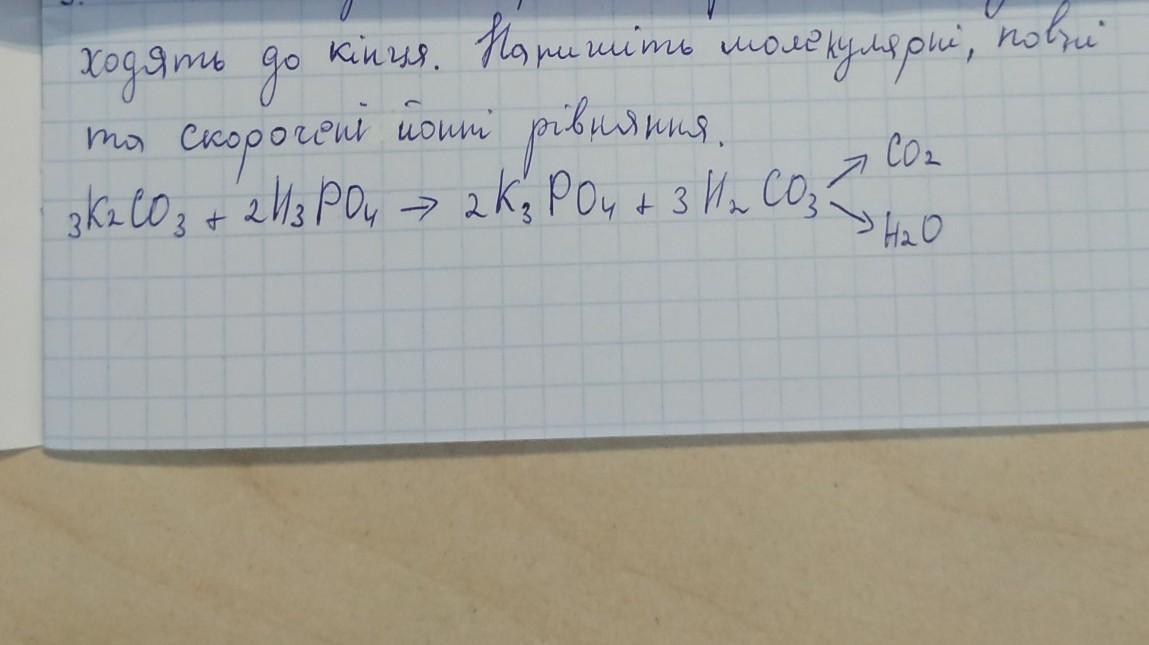 ходять до кінця. Напишіть молекулярні, повні
та скорочені йонні рівняння.
3K₂CO₃ + 2H₃PO₄ → 2K₃PO₄ + 3H₂CO₃ ↗ CO₂
↘ H₂O